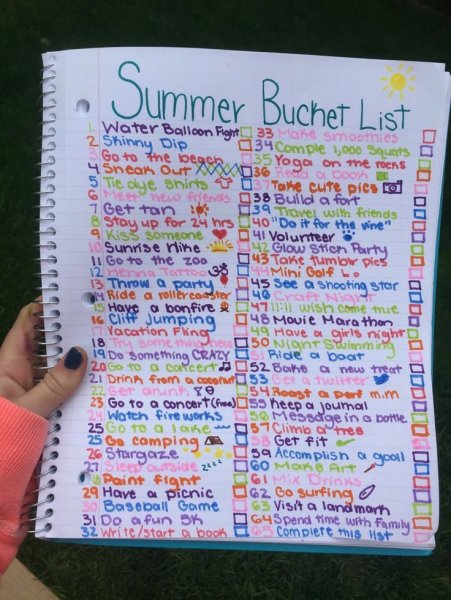 Summer Bucket List
1. Water Balloon Fight
2 Skinny Dip
3 Go to the beach
4 Sneak Out
5 Tie dye shirts
6 Meet new friends
7 Get tan
8 Stay up for 24 hrs
9 Kiss someone
10 Sunrise Hike
11 Go to the zoo
12 Henna Tattoo
13 Throw a party
14 Ride a rollercoaster
15 Have a bonfire
16 Cliff jumping
17 Vacation Fling
18 Try something new
19 Do something CRAZY
20 Go to a concert
21 Drink from a coconut
22 Get drunk
23 Go to a concert (free)
24 Watch fireworks
25 Go to a lake
25 Go camping
26 Stargaze
27 Sleep outside zzzz
28 Paint fight
29 Have a picnic
30 Baseball Game
31 Do a fun 5K
32 Write/start a book
33 Make smoothies
34 Comple 1,000 Squats
35 Yoga on the rocks
36 Read a book
37 Take cute pics
38 Build a fort
39 Travel with friends
40 "Do it for the vine"
41 Volunteer
42 Glow Stick Party
43 Take tumblr pics
44 Mini Golf
45 See a shooting star
46 Craft Night
47 11:11 wish come true
48 Movie Marathon
49 Have a girls night
50 Night Swimming
51 Ride a boat
52 Bake a new treat
53 Get a twitter
54 Roast a perf m.m
55 Keep a journal
56 Message in a bottle
57 Climb a tree
58 Get fit
59 Accomplish a goal
60 Make Art
61 Mix Drinks
62 Go surfing
63 Visit a landmark
64 Spend time with family
65 Complete this list